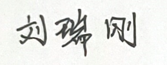 刘瑞刚